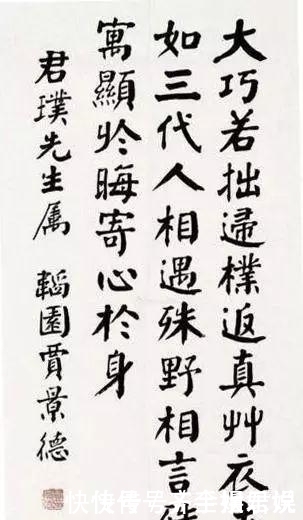 大巧若拙還樸返真艸衣
如三代人相遇殊野相言
寓顯於晦寄心於身
君璞先生属 韜園賈景德